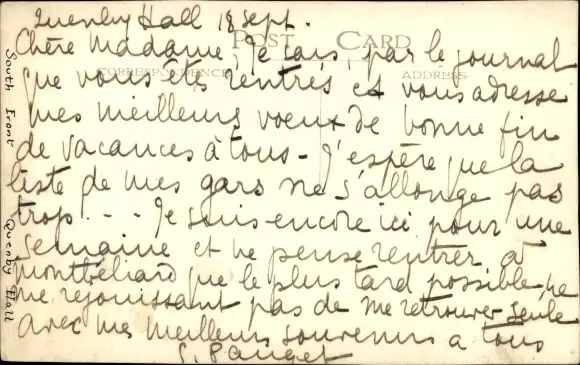 Quenby Hall 18 Sept.
Chère Madame, Je sais par le journal
POST CARD
que vous êtes rentrés et vous adresse
CORRESPONDENCE ADDRESS
mes meilleurs voeux de bonne fin
de vacances à tous - J'espère que la
liste de mes gars ne s'allonge pas
trop - - - Je suis encore ici pour une
semaine et ne pense rentrer à
montbéliard que le plus tard possible, ne
me rejouissant pas de me retrouver seule
avec mes meilleurs souvenirs a tous
Pauget
South Front Quenby Hall